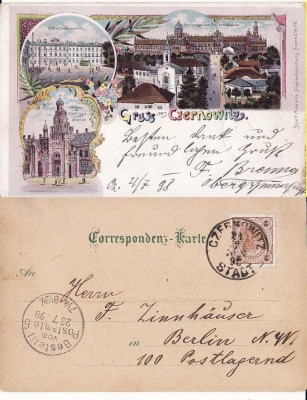 Gruss aus Czernowitz.
Besten Dank und
freundlichen Gruß
F. Brenner
Cz. 21/7 98
Correspondenz-Karte
An
CZERNOWITZ
STADT
Herrn
F. Zinnhäuser
in
Berlin N.W.
100 Postlagernd
Bestellt
vom
Postamte
23.7.98